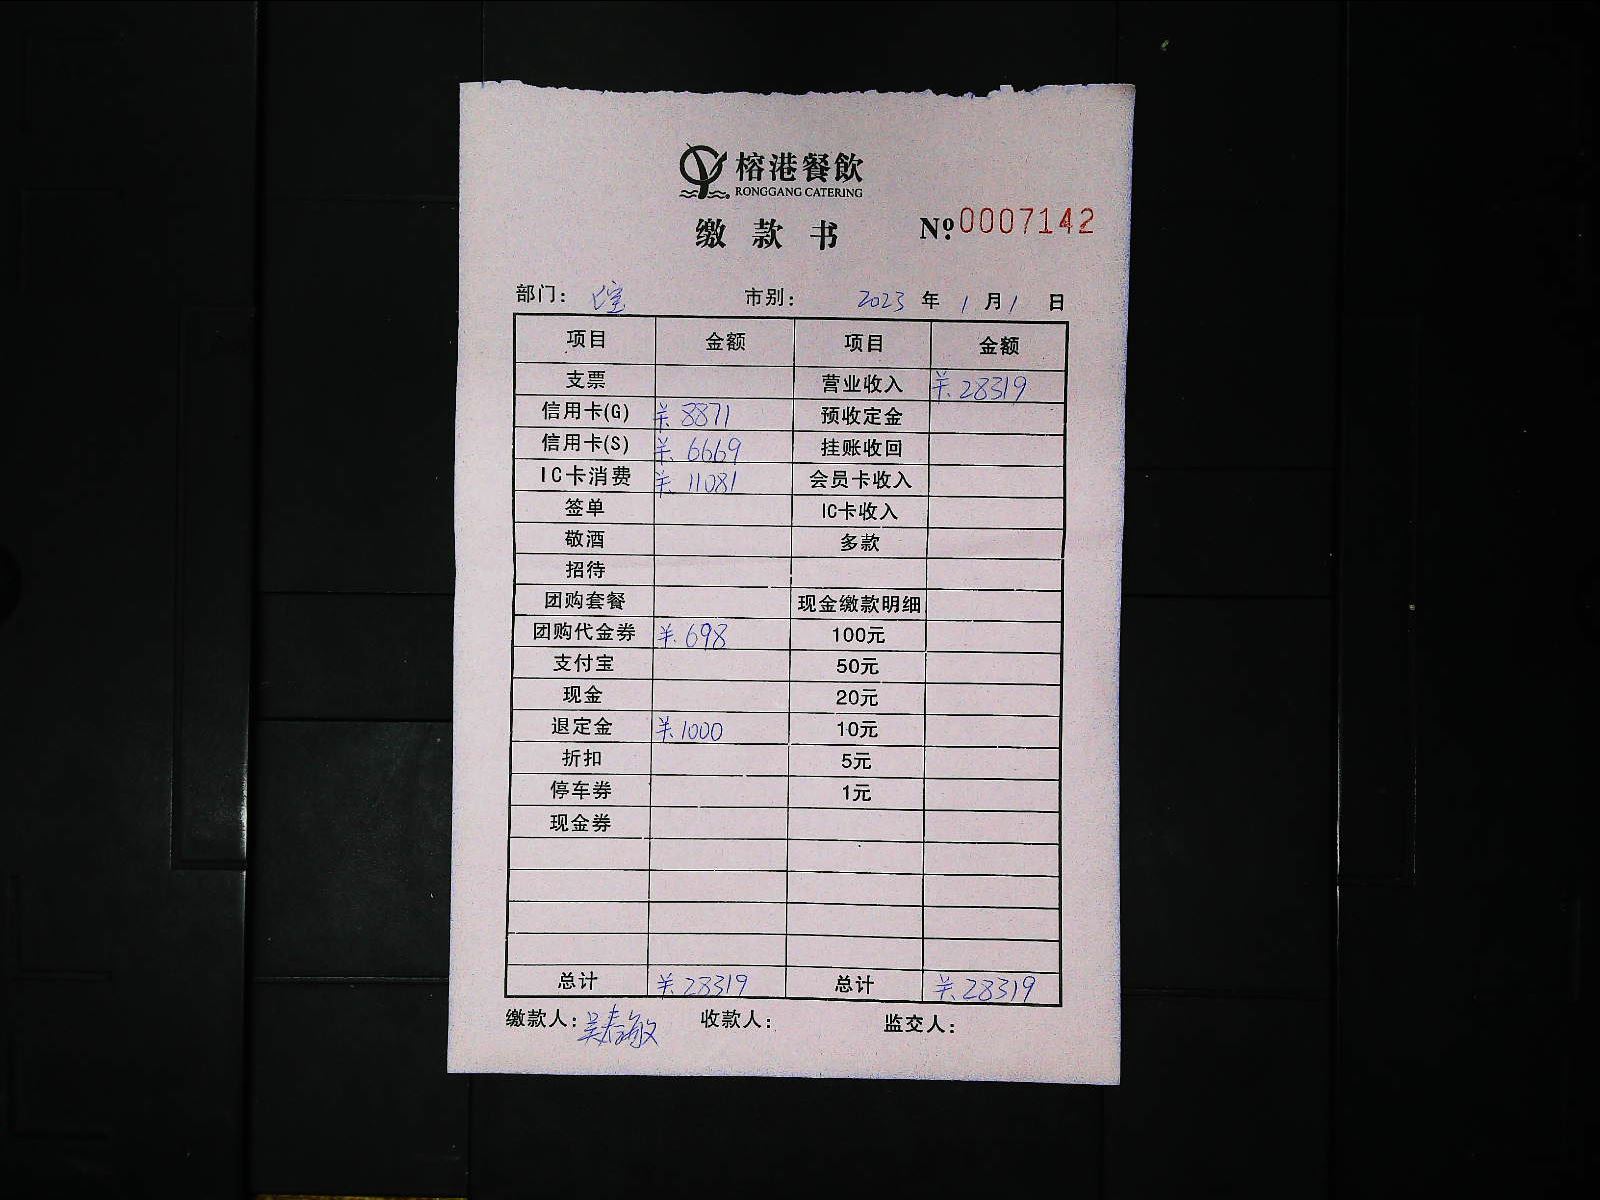 榕港餐飲
RONGGANG CATERING
缴款书 Nº:0007142
部门: 市别: 2023年1月1日
项目 金额 项目 金额
支票 营业收入 ¥.28319
信用卡(G) ¥.8871 预收定金
信用卡(S) ¥.6669 挂账收回
IC卡消费 ¥.11081 会员卡收入
签单 IC卡收入
敬酒 多款
招待
团购套餐 现金缴款明细
团购代金券 ¥.698 100元
支付宝 50元
现金 20元
退定金 ¥.1000 10元
折扣 5元
停车券 1元
现金券
总计 ¥.28319 总计 ¥.28319
缴款人:吴春敏 收款人: 监交人: